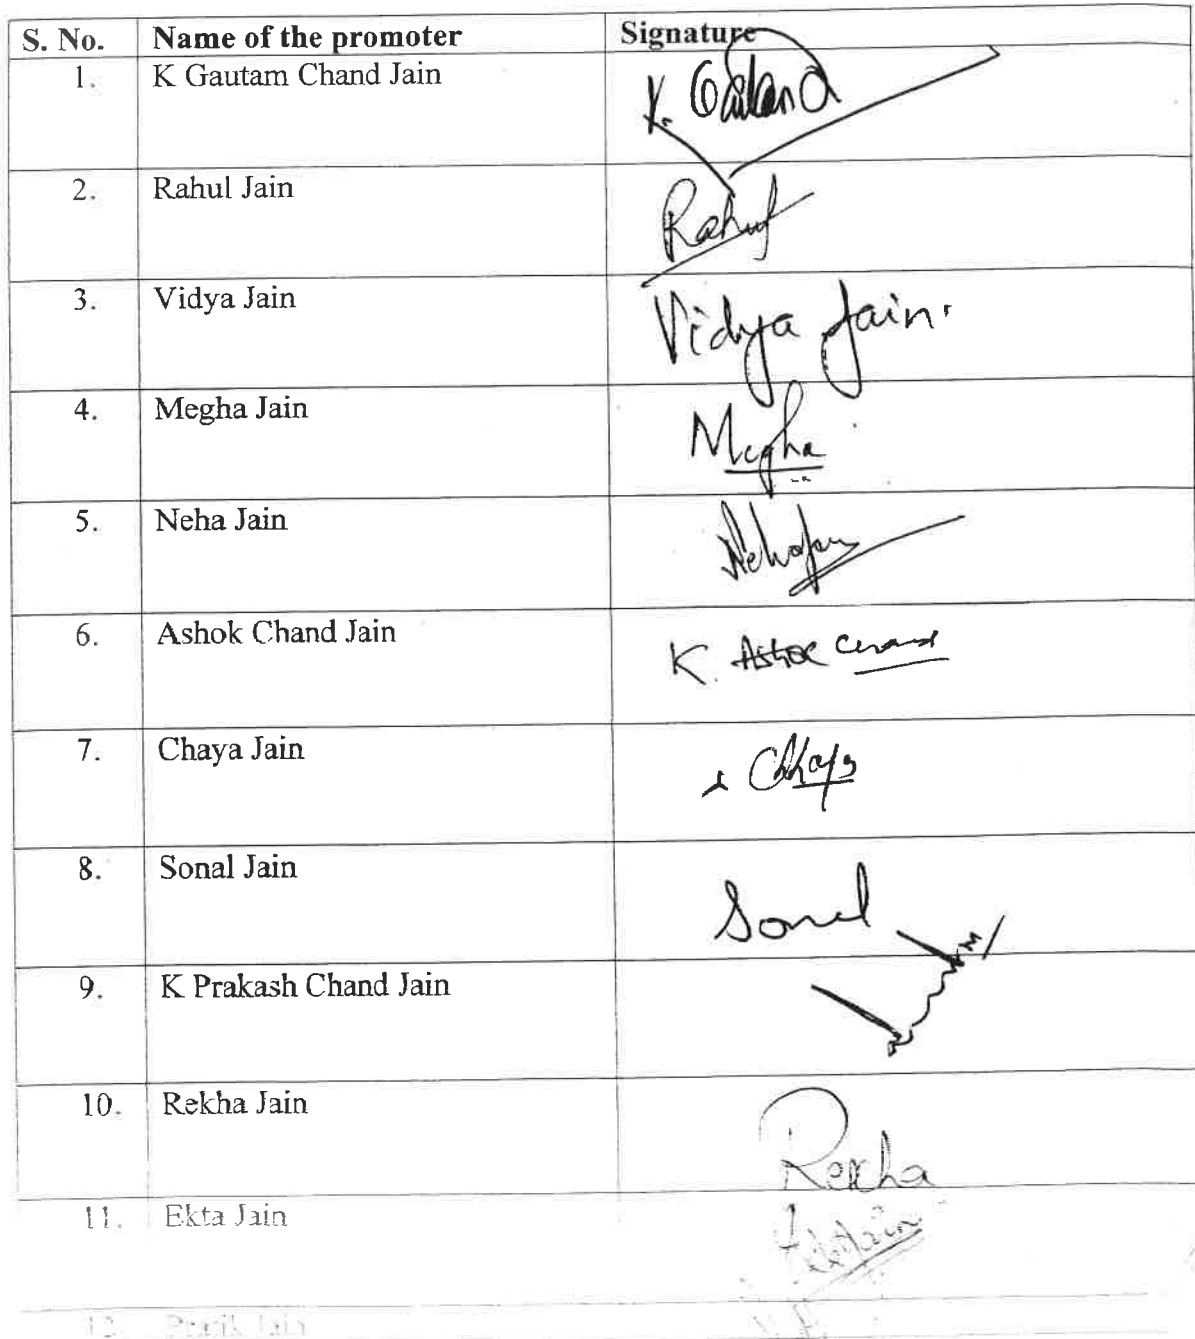 S. No. Name of the promoter Signature
1. K Gautam Chand Jain K. Gautam
2. Rahul Jain Rahul
3. Vidya Jain Vidya Jain.
4. Megha Jain Megha
5. Neha Jain Neha Jain
6. Ashok Chand Jain K. Ashok Chand
7. Chaya Jain Chhaya
8. Sonal Jain Sonal
9. K Prakash Chand Jain
10. Rekha Jain Rekha
11. Ekta Jain
12. Pratik Jain